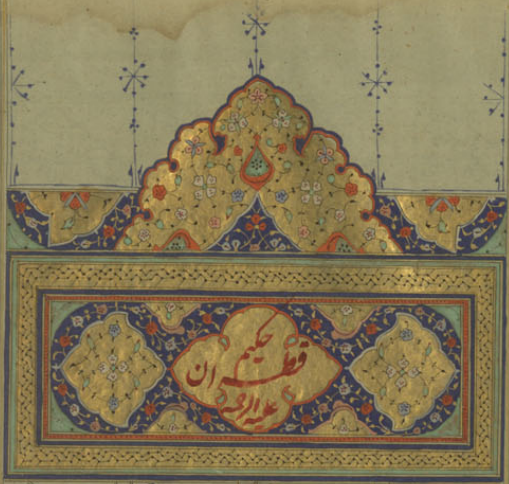 حکیم
قطران
علیه الرحمه